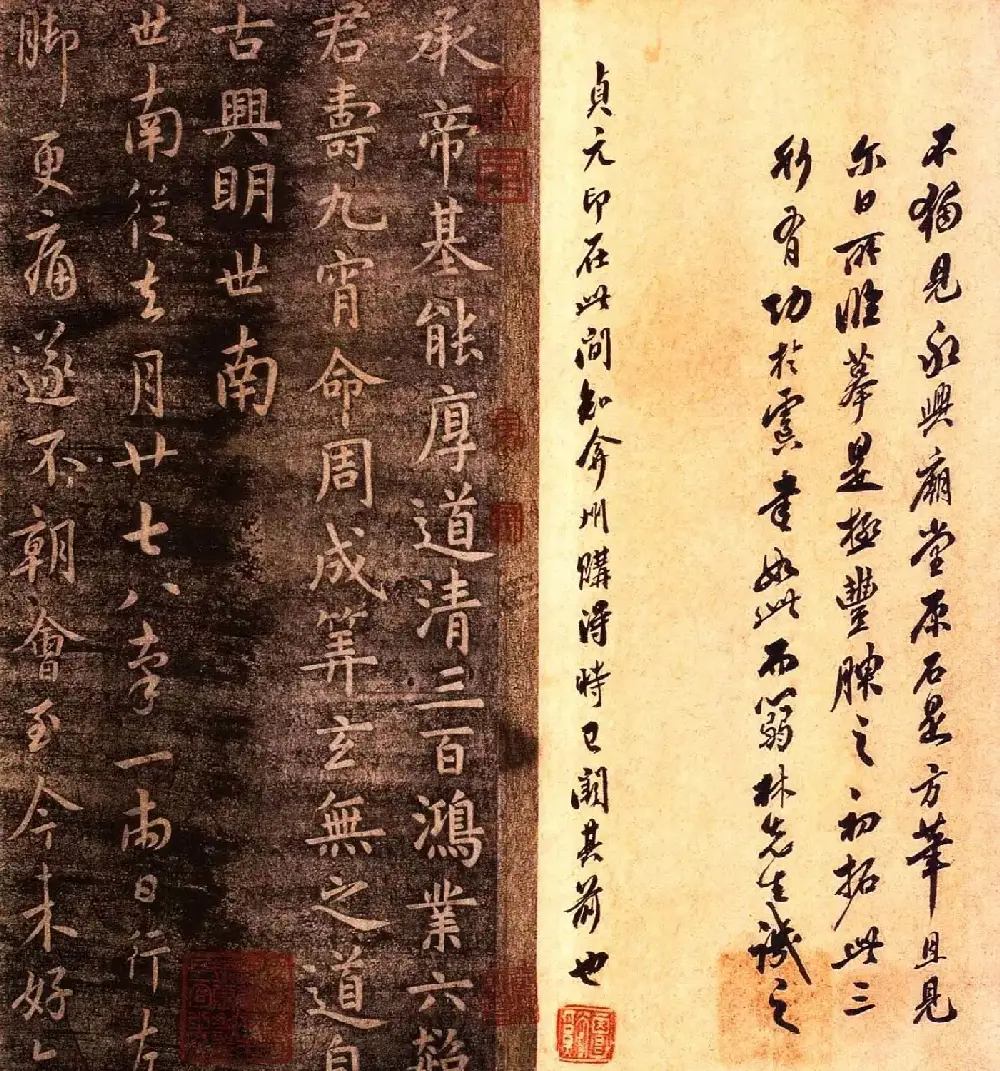 不獨見永興廟堂原石是方筆且見
尔日所臨摹是極豐腴之初拓此三
行有功於虞書如此而篛林先生識之
貞元印在此間知弇州購得時已闕其前也
承帝基能厚道清三百鴻業六超
君壽九宵命周成筭玄無之道自
古興明世南
世南從去月廿七八率一兩日行左
脚更痛遂不朝會至今未好